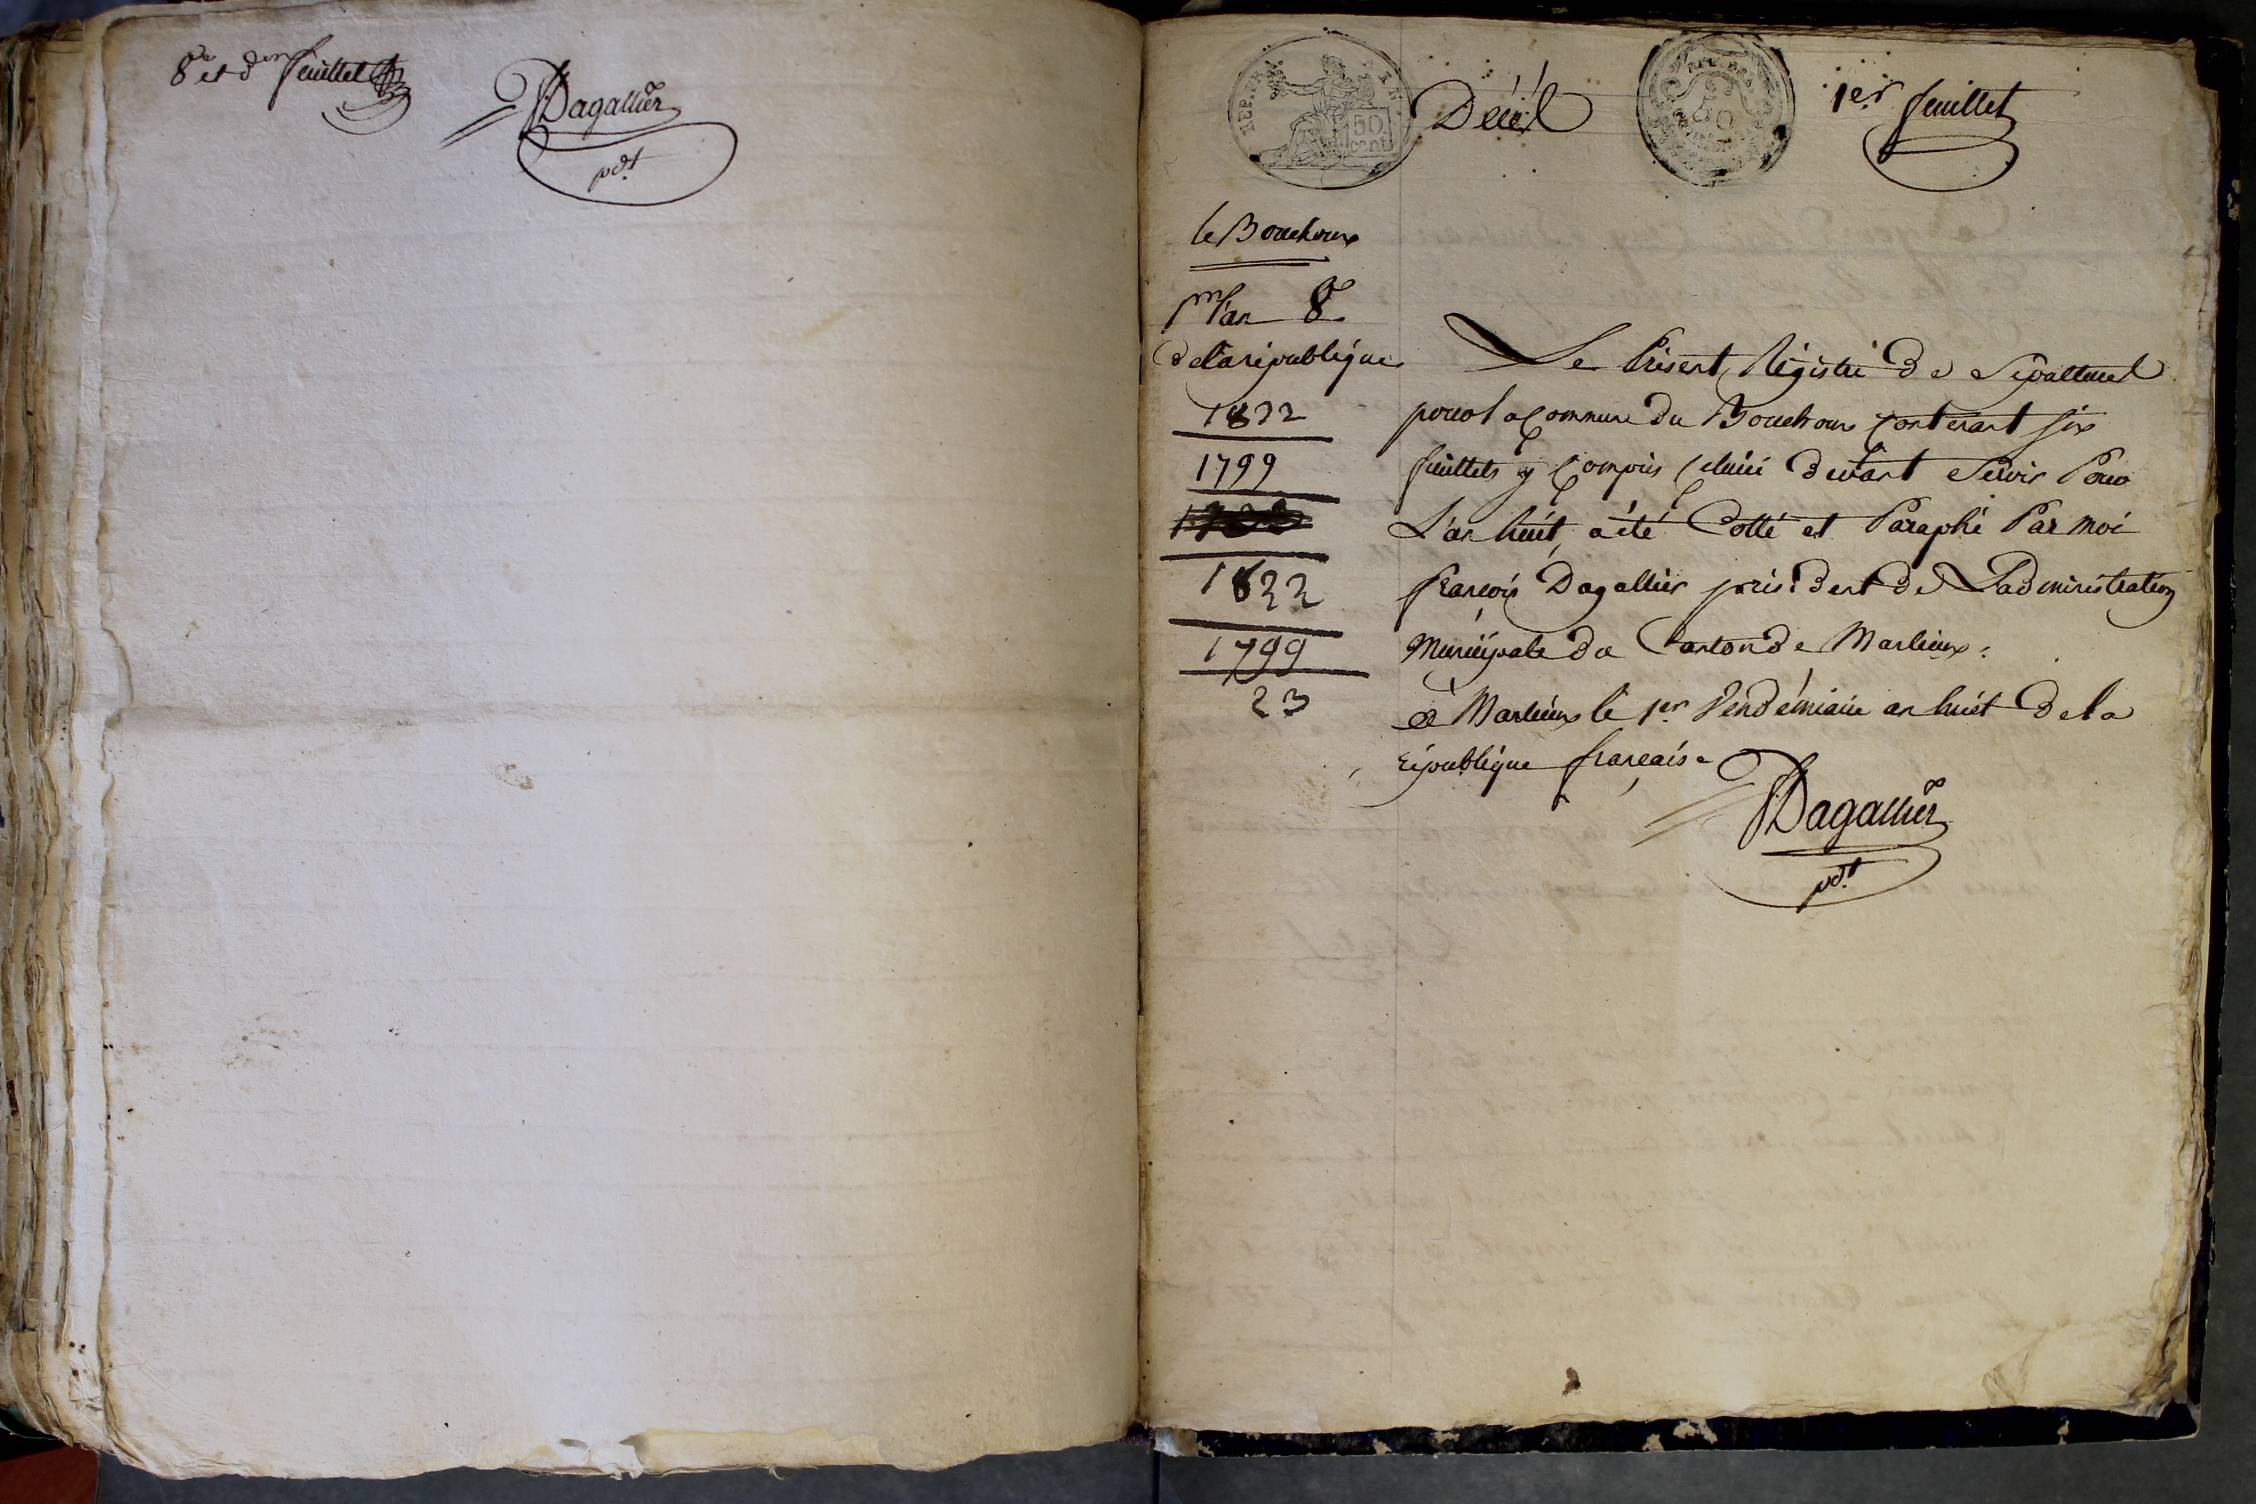 8e et der feuillet
Dagallier
pdt
REP. FRA
50
cent
Décès
1er feuillet
le Bouchoux
pr l'an 8
de la republique
1822
1799
1822
1799
23
Le Présent Régistre de Sepultures
pour la Commune du Bouchoux Contenant six
feuillets y Compris Celuici devant Servir Pour
L'an huit, a été Cotté et Paraphé Par moi
françois Dagallier président de L'administration
Municipale du Canton de Marlieux.
a Marlieux le 1er Vendémiaire an huit de la
République française
Dagallier
pdt